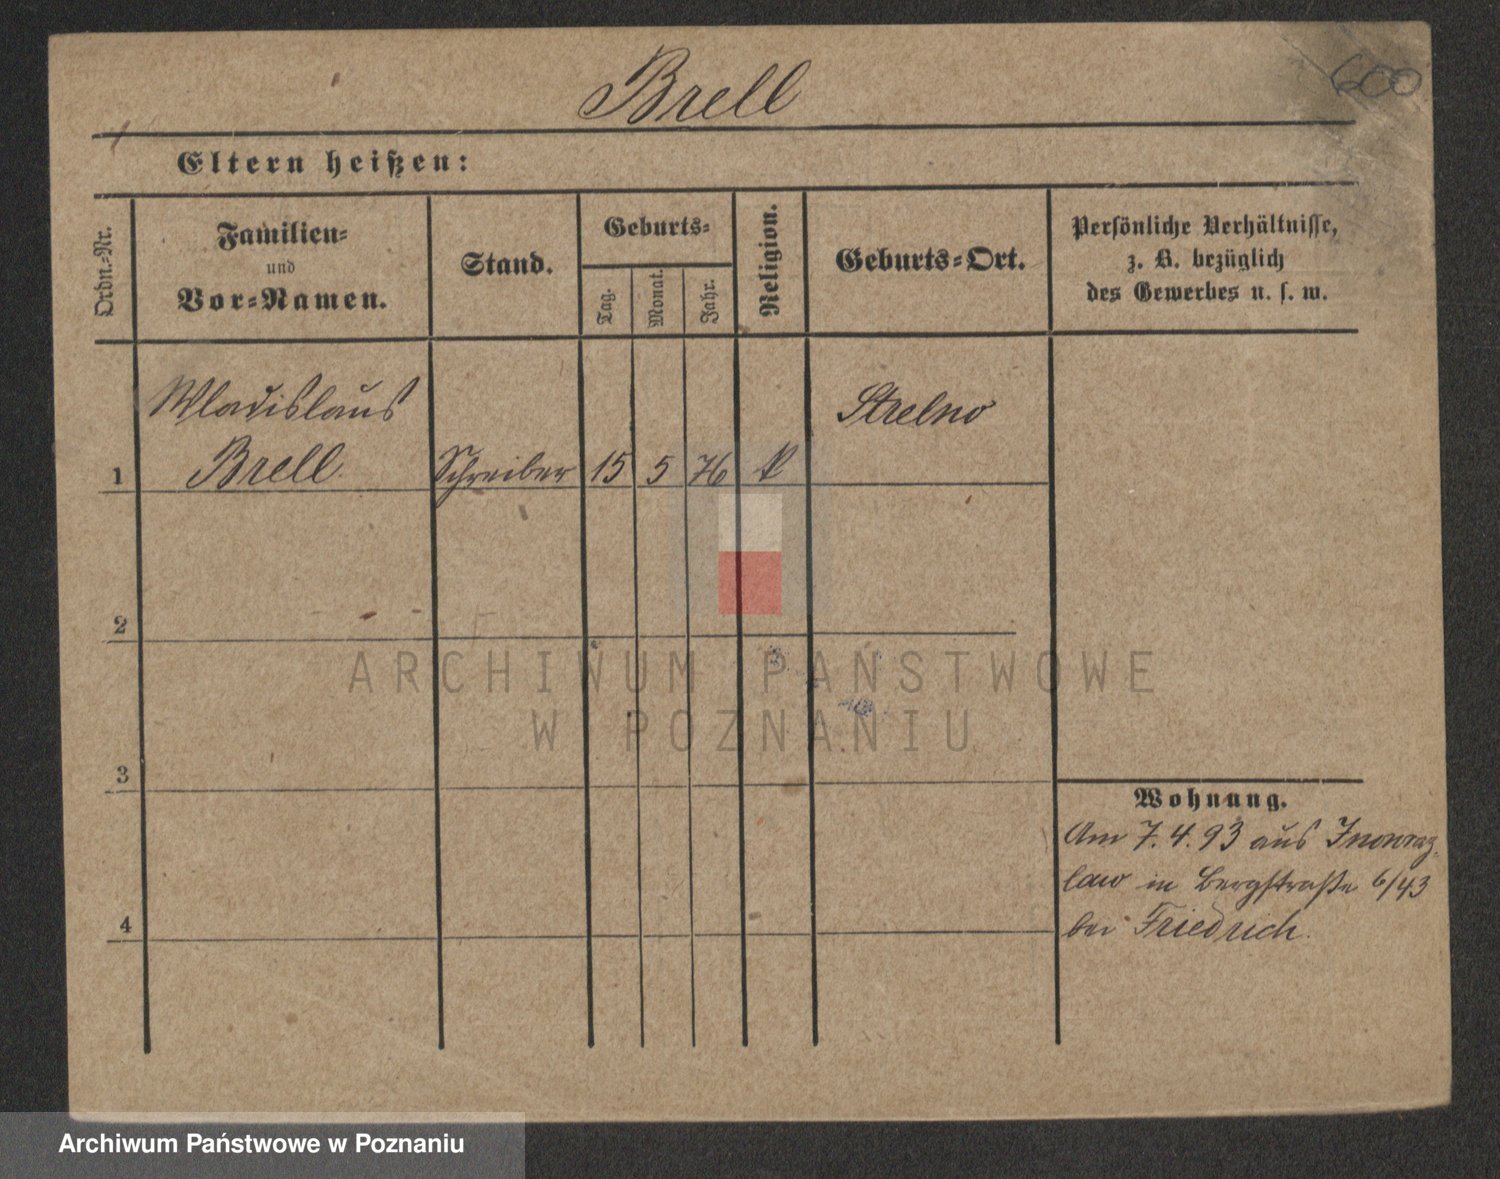 600
Brell
Eltern heißen:
Ordn.-Nr.
Familien-
und
Vor-Namen.
Stand.
Geburts-
Tag.
Monat.
Jahr.
Religion.
Geburts-Ort.
Persönliche Verhältnisse,
z. B. bezüglich
des Gewerbes u. s. w.
Wladislaus
Strelno
1 Brell Schreiber 15 5 76 k
2
ARCHIWUM PAŃSTWOWE
W POZNANIU
3
Wohnung.
Am 7.4.93 aus Inowraz-
law in Bergstraße 6/43
4
bei Friedrich.
Archiwum Państwowe w Poznaniu